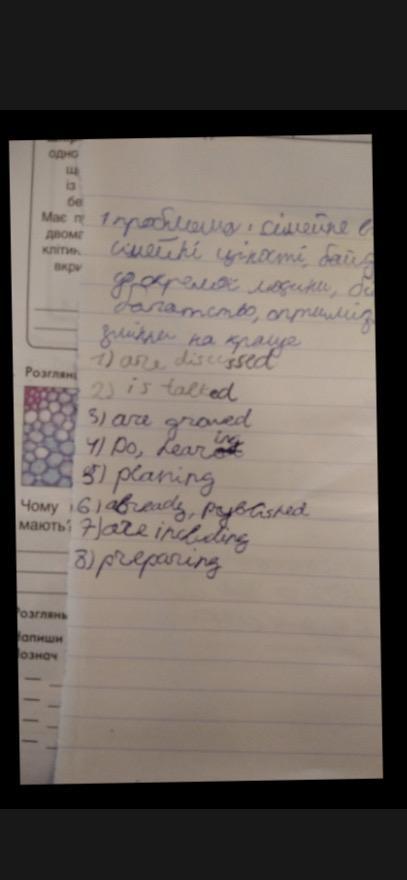 одно
щ
із
бе
Має п
двома
клітин
вкри
1 проблема: сімейне в
сімейні цінності, байд
до окремої людини, бі
багатство, оптиміз
зміни на краще
1) are discussed
2) is talked
3) are growed
4) Do, hearing
5) planing
6) already, published
7) are including
8) preparing
Розглян
Чому
мають?
Розглянь
Напиши
познач